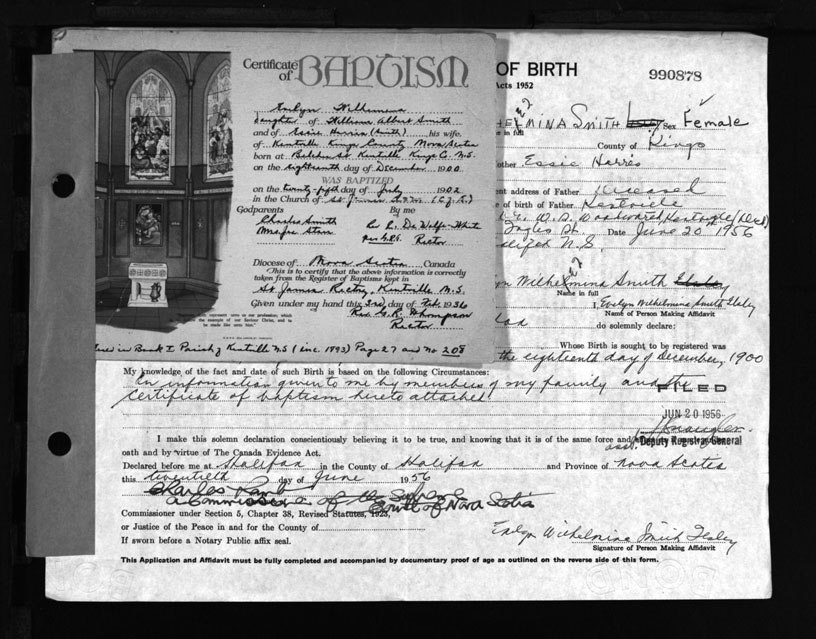 Certificate of BAPTISM
Evelyn Wilhemena
daughter of William Albert Smith
and of Essie Harris (Smith), his wife.
of Kentville Kings County Nova Scotia
born at Belcher St. Kentville Kings Co. N.S.
on the eighteenth day of December 1900
WAS BAPTIZED
on the twenty-fifth day of July 1902
in the Church of St. James
Godparents By me
Charles Smith Rev. De Wolfe-White
Rector
Diocese of Nova Scotia Canada
This is to certify that the above information is correctly
taken from the Register of Baptisms kept in
St. James Rectory, Kentville N.S.
Given under my hand this 3rd day of Feb. 1936
Rev. G. R. Thompson
Rector
in Book I Parish of Kentville N.S (inc. 1893) Page 27 and no 208
OF BIRTH
990878
Acts 1952
MINA SMITH Sex Female
in full
County of Kings
other Essie Harris
nt address of Father Deceased
of birth of Father
Date June 20th 1956
N.S.
Wilhelmina Smith
Name in full
I, Evelyn Wilhelmina Smith
Name of Person Making Affidavit
do solemnly declare:
Whose Birth is sought to be registered was
the eighteenth day of December, 1900
My knowledge of the fact and date of such Birth is based on the following Circumstances:
On information given to me by members of my family and the
certificate of baptism hereto attached
FILED
JUN 20 1956
Asst. Deputy Registrar General
I make this solemn declaration conscientiously believing it to be true, and knowing that it is of the same force and
oath and by virtue of The Canada Evidence Act.
Declared before me at Halifax in the County of Halifax and Province of Nova Scotia
this twentieth day of June 1956
A Commissioner of the Supreme
Court of Nova Scotia
Commissioner under Section 5, Chapter 38, Revised Statutes, 1923,
or Justice of the Peace in and for the County of
If sworn before a Notary Public affix seal.
Evelyn Wilhelmina Smith
Signature of Person Making Affidavit
This Application and Affidavit must be fully completed and accompanied by documentary proof of age as outlined on the reverse side of this form.